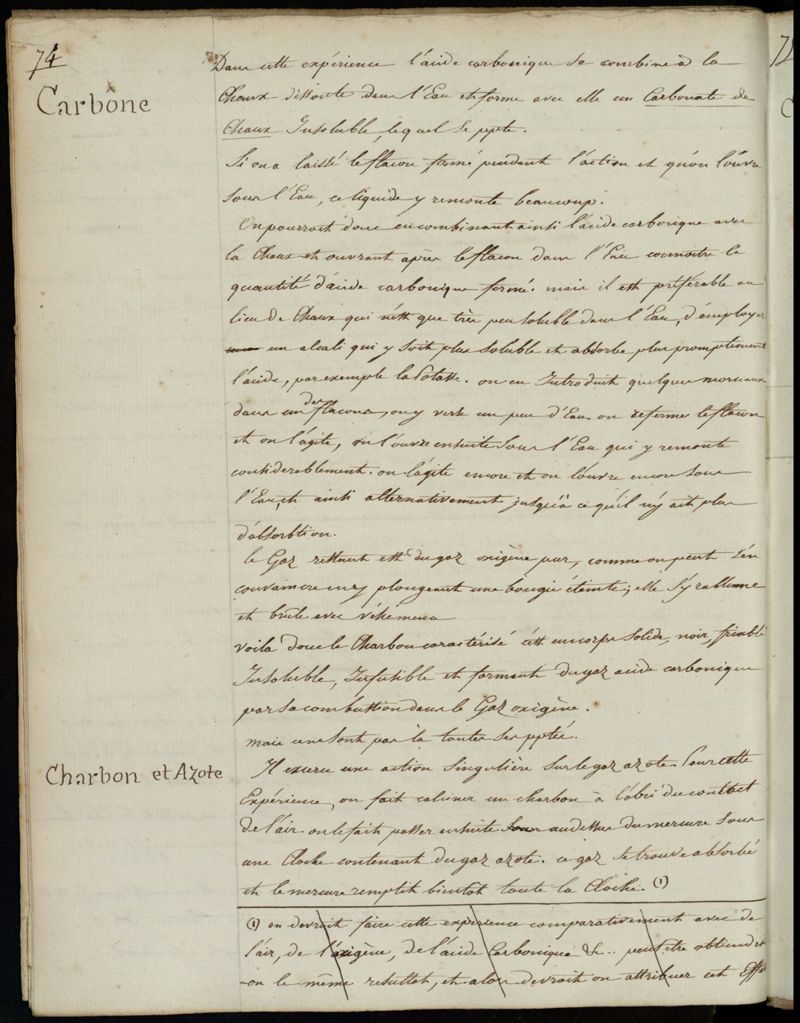 74
Carbone
Dans cette expérience l'acide carbonique se combine à la
Chaux dissoute dans l'Eau et forme avec elle un Carbonate de
Chaux Insoluble, lequel se ppte.
Si on a laissé le flacon fermé pendant l'action et qu'on l'ouvre
sous l'Eau, ce liquide y remonte beaucoup.
On pourroit donc en combinant ainsi l'acide carbonique avec
la Chaux et ouvrant après le flacon dans l'Eau connoitre la
quantité d'acide carbonique formé. mais il est préférable au
lieu de Chaux qui n'est que très peu soluble dans l'Eau, d'employer
un alcali qui y soit plus soluble et absorbe plus promptement
l'acide, par exemple la Potasse. on en Introduit quelques morceaux
dans un des flacons, on y verse un peu d'Eau on referme le flacon
et on l'agite, on l'ouvre ensuite sous l'Eau qui y remonte
considerablement. on l'agite encore et on l'ouvre encore sous
l'Eau, et ainsi alternativement jusqu'à ce qu'il n'y ait plus
d'absorbtion.
le Gaz restant est du gaz oxigène pur, comme on peut s'en
convaincre en y plongeant une bougie éteinte; elle s'y rallume
et brûle avec véhémence
voila donc le Charbon caractérisé c'est un corps solide, noir, friable
Insoluble, Infusible et formant du gaz acide carbonique
par sa combustion dans le Gaz oxigène.
mais ce ne sont pas là toutes ses pptés.
Charbon et Azote
Il exerce une action singulière sur le gaz azote. Pour cette
Expérience, on fait calciner un charbon à l'abri du contact
de l'air. on le fait passer ensuite au dessus du mercure sous
une Cloche contenant du gaz azote. ce gaz se trouve absorbé
et le mercure remplit bientot toute la Cloche. (1)
(1) on devroit faire cette expérience comparativement avec de
l'air, de l'oxigène, de l'acide Carbonique &c.. peut être obtiendroit
on le même resultat, et alors devroit on attribuer cet Effet